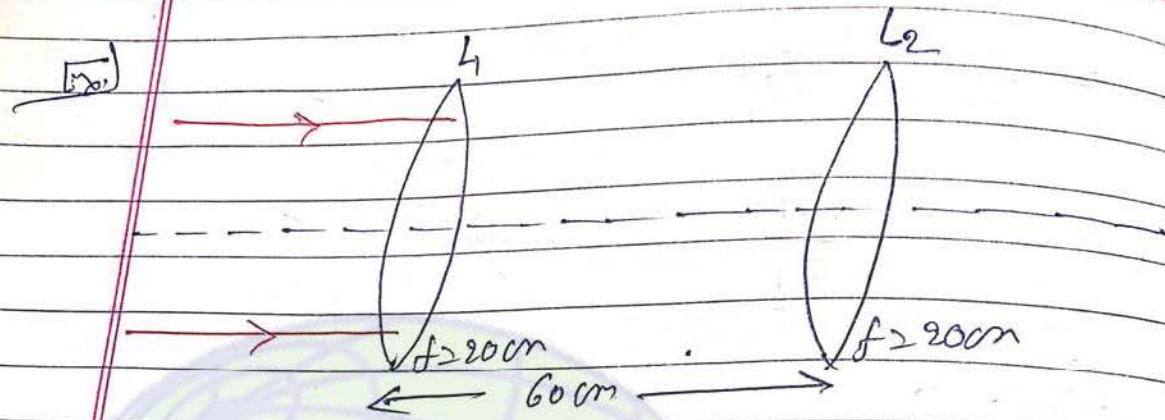 L1
L2
f=20cm
f=20cm
60cm